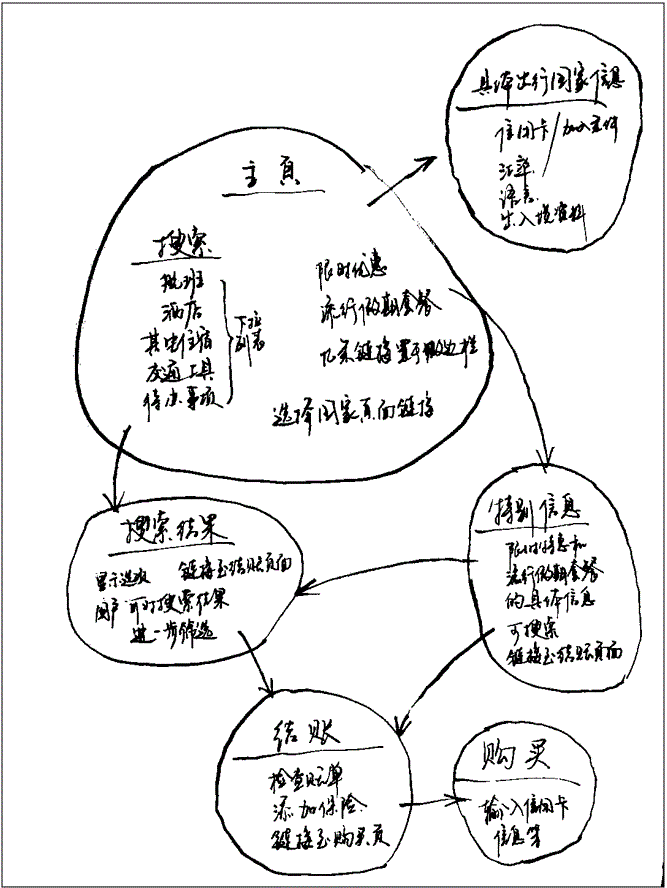 具体出行国家信息
信用卡/加入条件
汇率
语言
出入境资料
主頁
搜索
航班
酒店
其它住宿
交通工具
待办事项
下拉
列表
限时优惠
流行假期套餐
几条链接置于侧边栏
选择国家页面链接
搜索结果
显示选项
链接至结账页面
用户可对搜索结果
进一步筛选
特别信息
限时特惠和
流行假期套餐
的具体信息
可搜索
链接至结账页面
结账
检查账单
添加保险
链接至购买页
购买
输入信用卡
信息等